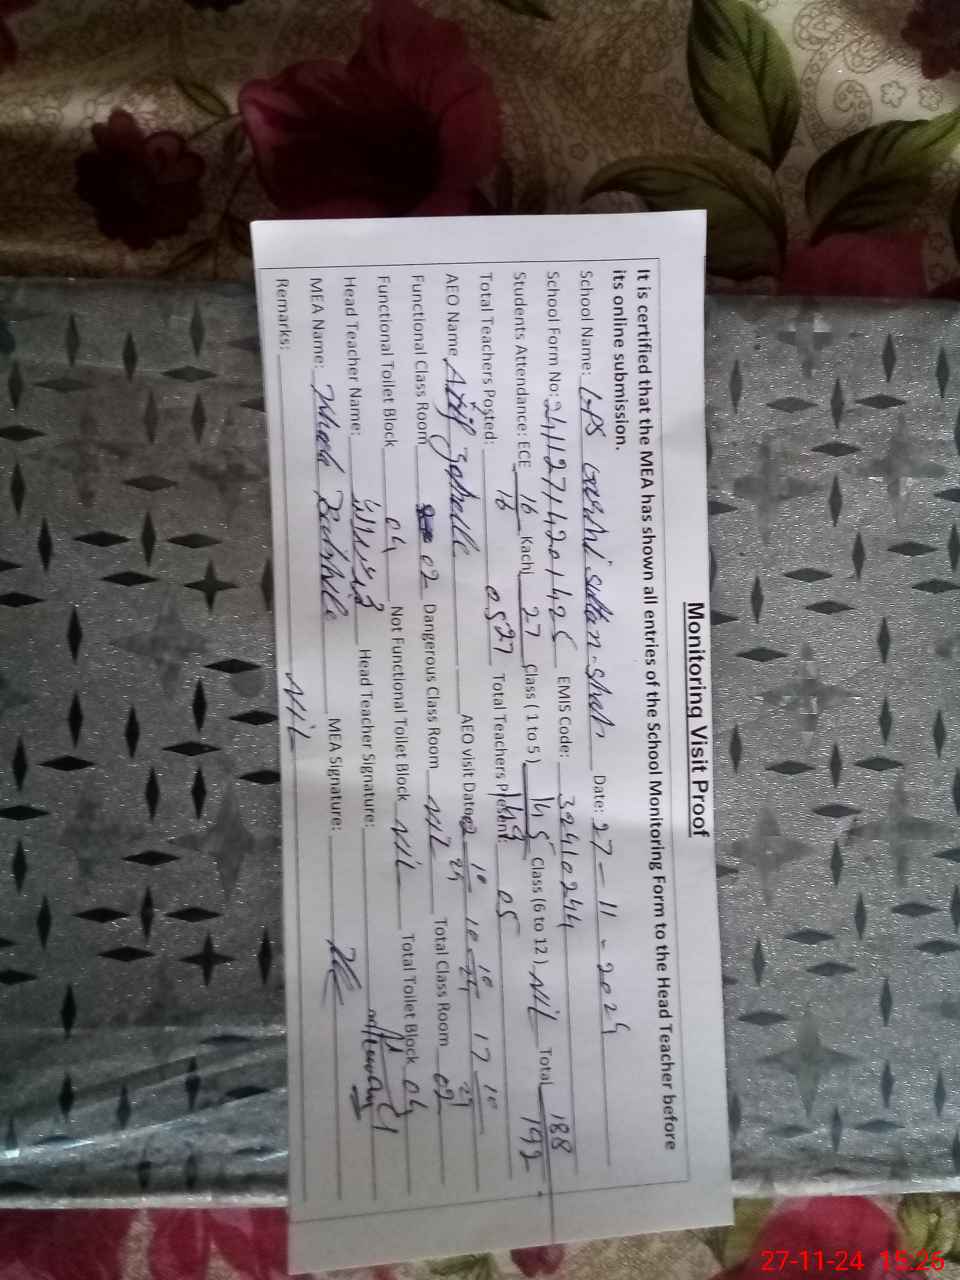 Monitoring Visit Proof
It is certified that the MEA has shown all entries of the School Monitoring Form to the Head Teacher before
its online submission.
School Name: GPS Sultan Shah Date: 27-11-2024
School Form No: EMIS Code: 32410244
Students Attendance: ECE 16/16 Kachi 27/27 Class ( 1 to 5 ) 145/149 Class (6 to 12 ) NIL Total 188/192
Total Teachers Posted: 05 Total Teachers Present: 05
AEO Name AEO visit Date 10/24 10 10/24 17 10/24
Functional Class Room 02 Dangerous Class Room NIL Total Class Room 02
Functional Toilet Block 04 Not Functional Toilet Block NIL Total Toilet Block 04
Head Teacher Name: Head Teacher Signature:
MEA Name: MEA Signature:
Remarks: NIL
27-11-24 15:26